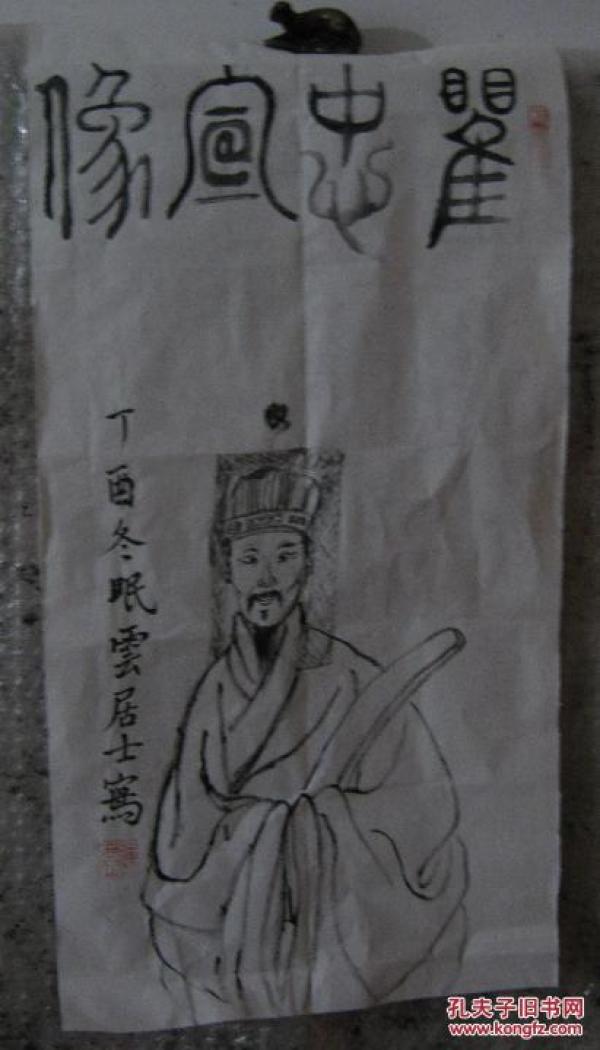 瞿忠宣像
丁酉冬眠雲居士寫
孔夫子旧书网
www.kongfz.com